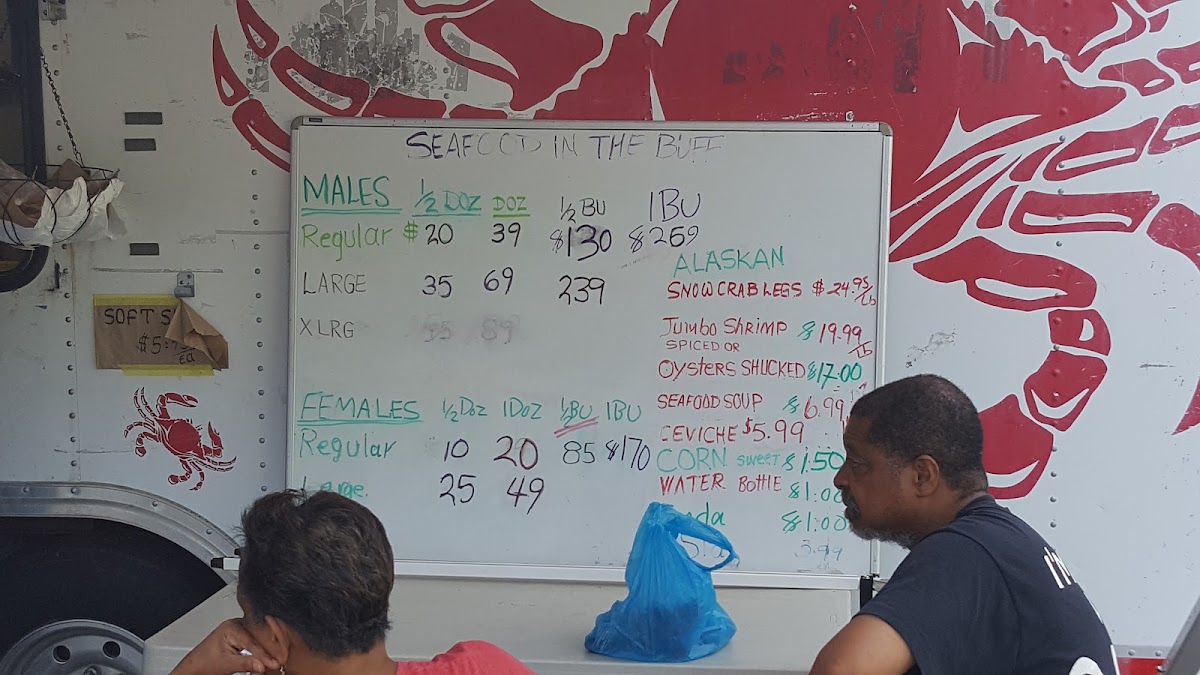 SEAFOOD IN THE BUFF
MALES 1/2 DOZ DOZ 1/2 BU 1BU
Regular $20 39 $130 $269
LARGE 35 69 239
X LRG 55 89
FEMALES 1/2 DOZ 1DOZ 1/2 BU 1BU
Regular 10 20 85 $170
Large 25 49
ALASKAN
SNOW CRAB LEGS $24.95/Lb
Jumbo Shrimp $19.99/Lb
SPICED OR
OYSTERS SHUCKED $17.00
SEAFOOD SOUP $6.99
CEVICHE $5.99
CORN SWEET $1.50
WATER BOTTLE $1.00
$1.00
3.99
SOFT
ea